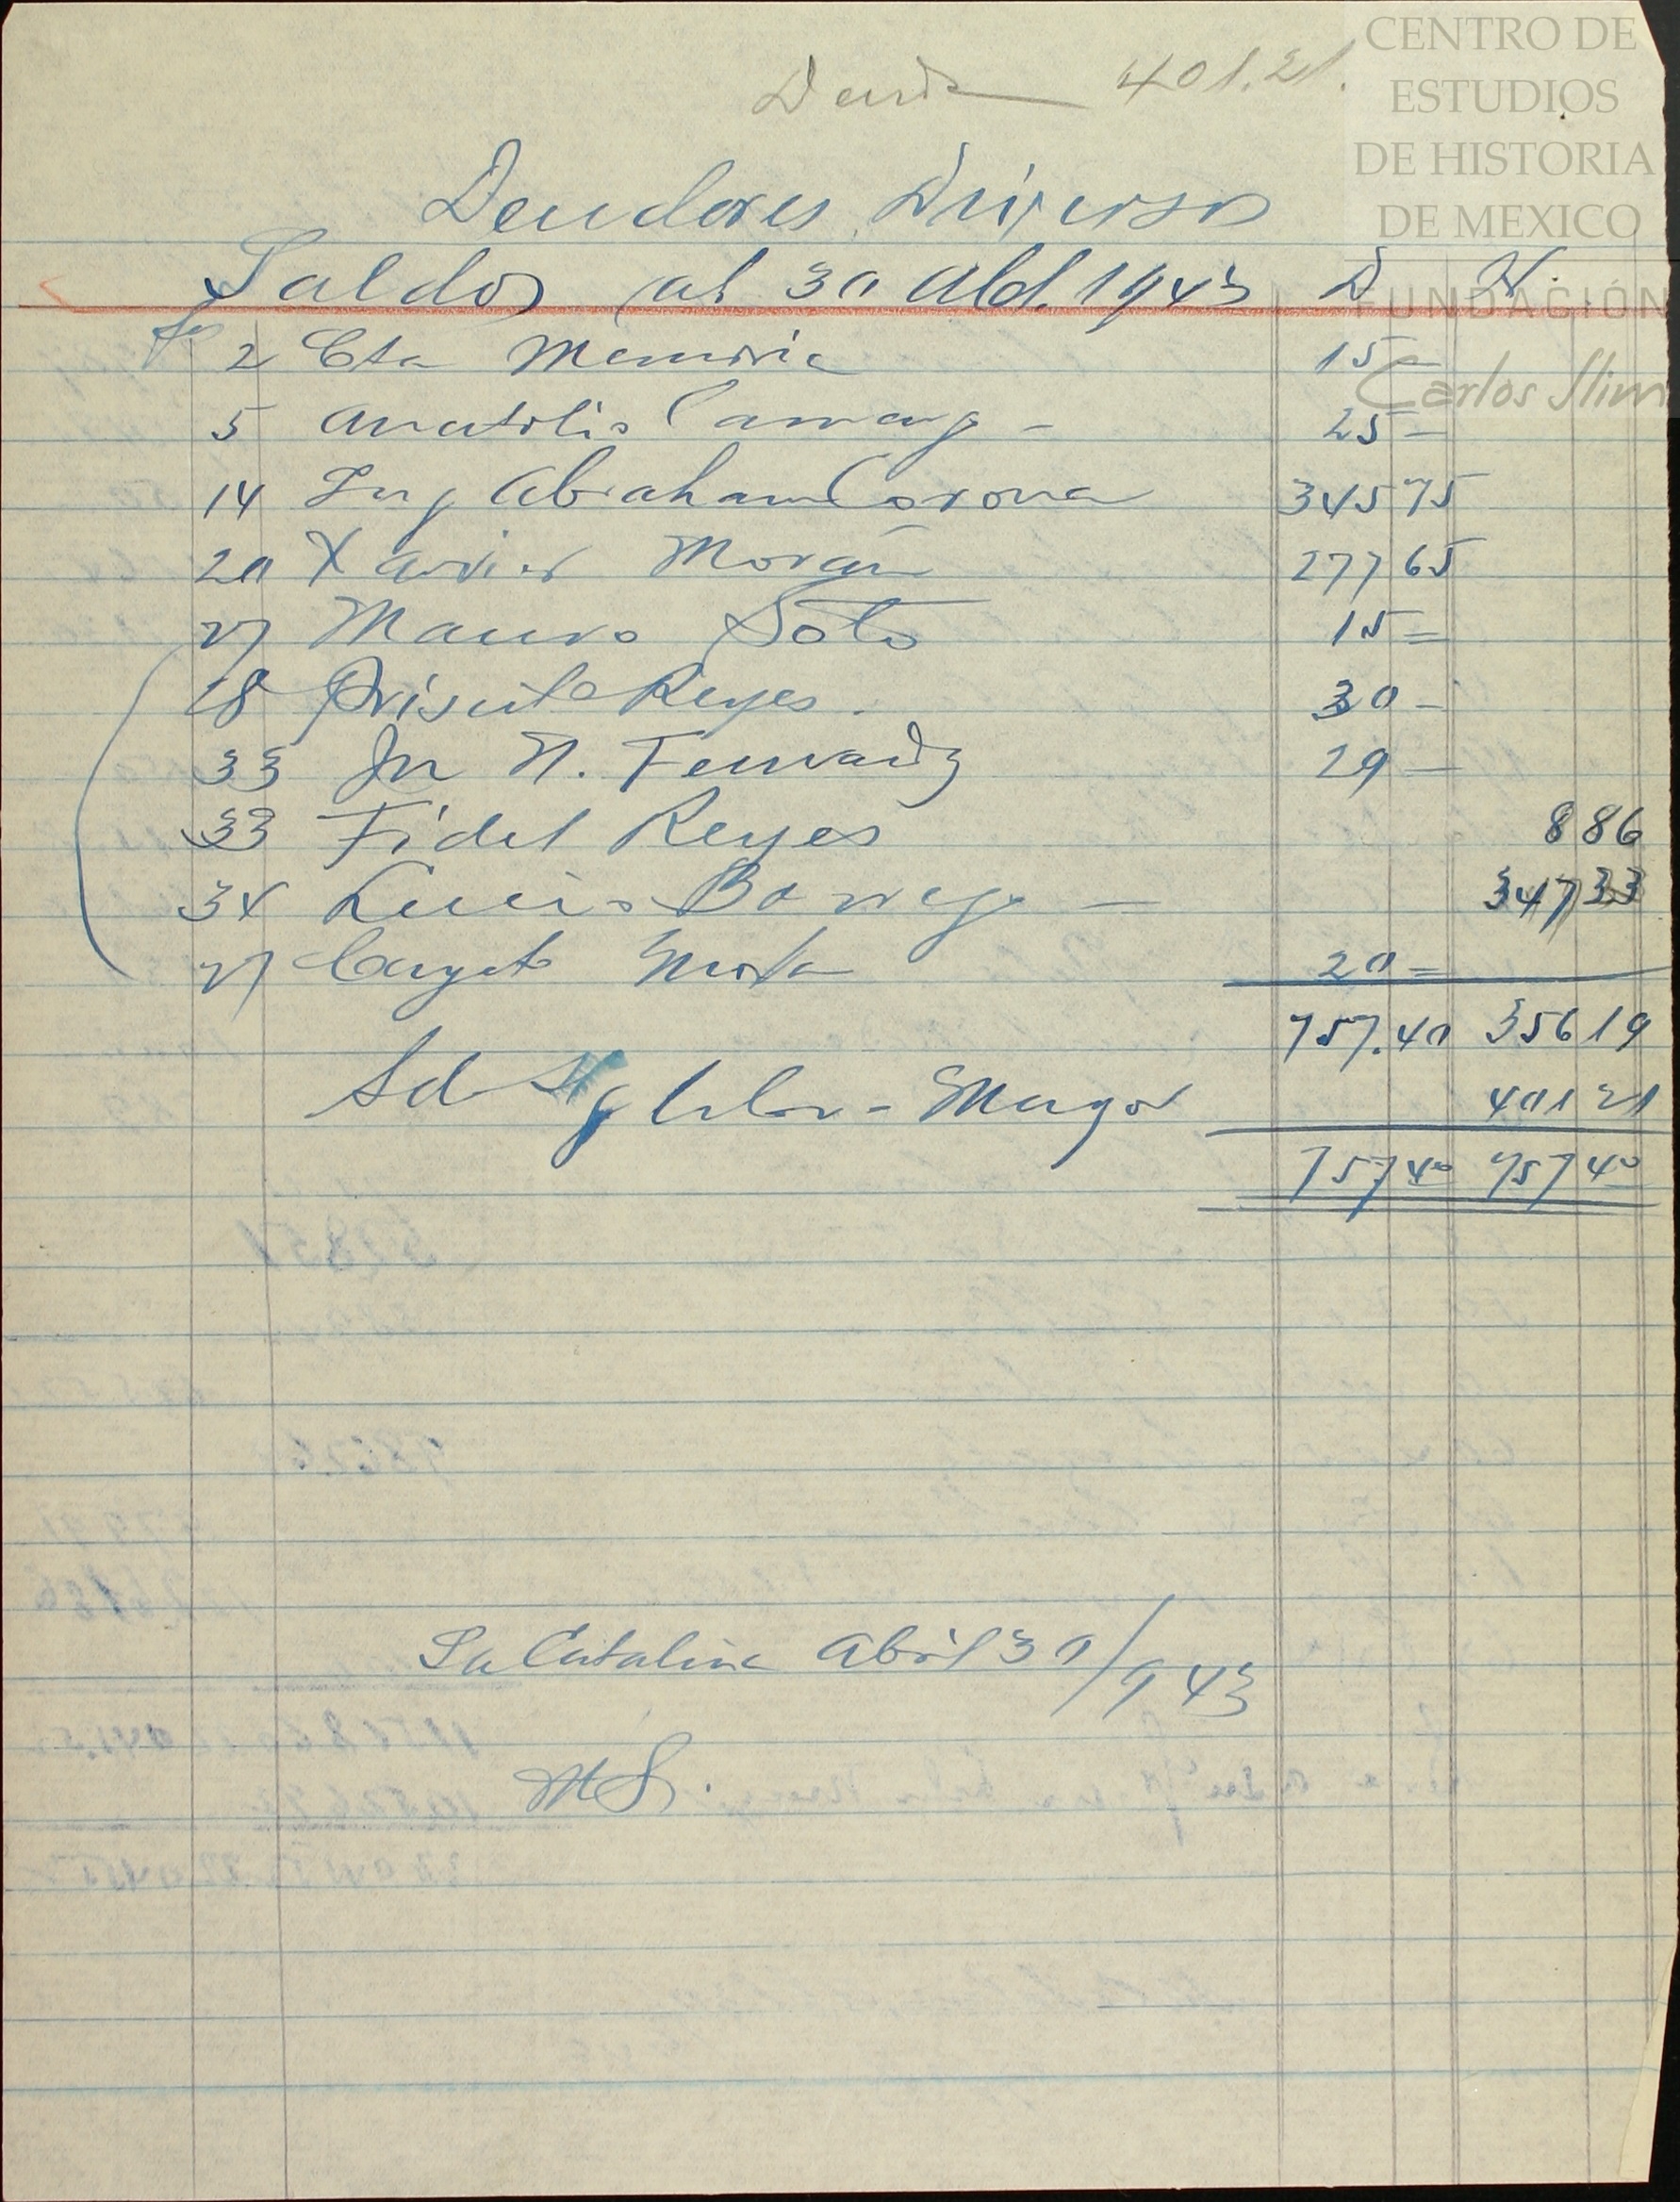 CENTRO DE
ESTUDIOS
DE HISTORIA
DE MEXICO
FUNDACIÓN
Carlos Slim
401.21.
Deudores Diversos
Saldos al 30 Abl. 1943 D H.
2 Cta Memoria 15 —
5 Anatolio Camargo — 25 —
14 Ing Abraham Corona 345 75
20 Xavier Morán 277 65
27 Mauro Soto 15 =
28 Reyes. 30 —
33 Jn N. Fernandz 29 —
33 Fidel Reyes 8 86
34 Lucio Borrego — 347 33
27 Mota 20 =
757.40 356 19
Sd S/g Libro - Mayor 401 21
757 40 757 40
La Catalina Abril 30/943
MS.